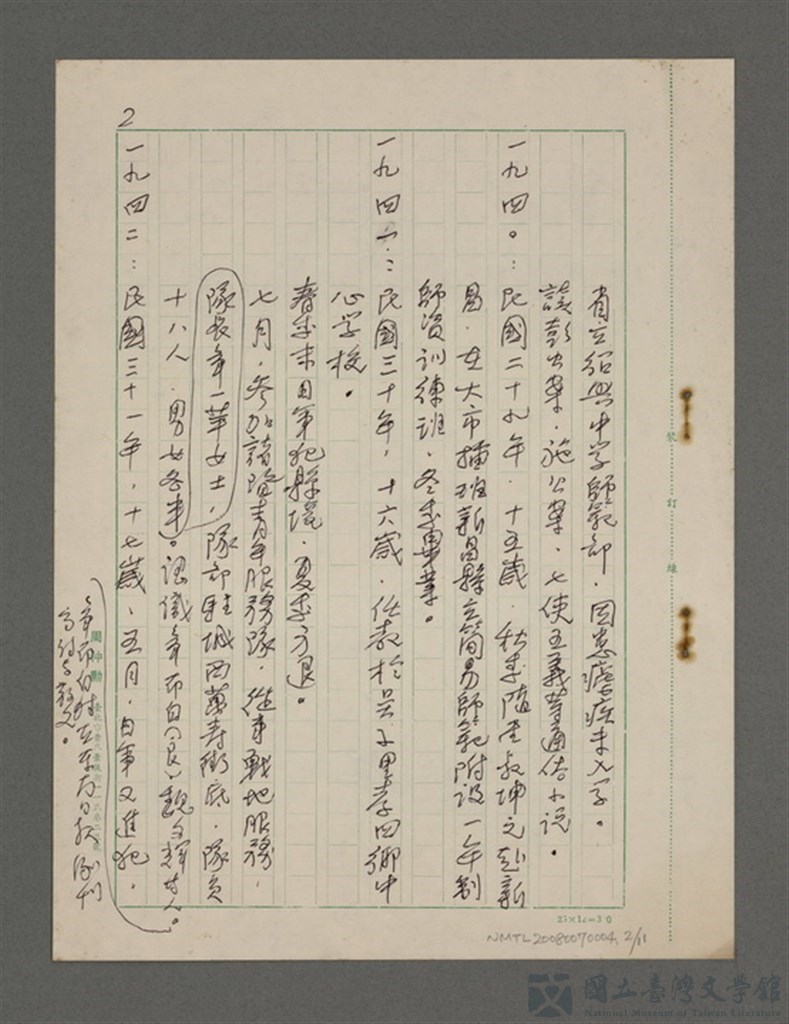 2
省立紹興中学師範部．因患瘧疾未入学。
讀彭公案．施公案．七俠五義等通俗小說。
一九四〇：民國二十九年．十五歲．秋季隨堂叔坤元赴新
昌．在大市插班新昌縣立簡易師範附設一年制
師資訓練班．冬季畢業。
一九四一：民國三十年，十六歲．任教於 里孝四鄉中
心学校。
春季末日軍犯縣境．夏季方退。
七月．參加諸暨青年服務隊．從事戰地服務，
隊長 一華女士，隊部駐城西萬壽街底．隊員
十八人．男女各半。認識 布白（良）魏 輝等人。
一九四二：民國三十一年，十七歲、五月．日軍又進犯，
裝訂線
25×12=30
NMTL20080070004, 2/11
國立臺灣文學館
National Museum of Taiwan Literature